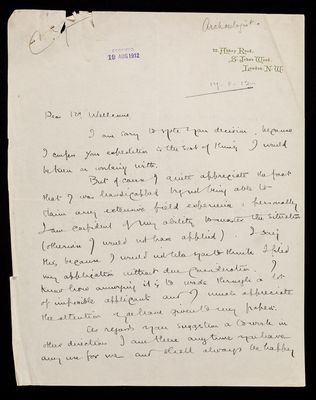 Archaeologist.
RECEIVED
19 AUG 1912
Abbey Road,
St. John's Wood,
London N.W.
17. 8. 12.
Dear Mr Wellcome
I am sorry to note your decision, because
I confess your expedition is the sort of thing I would
be keen on working with.
But of course I quite appreciate the fact
that I was handicapped by not being able to
claim any extensive field experience; personally
I am confident of my ability to master the situation
(otherwise I would not have applied). I say
this, because I would not like you to think I filed
my application without due consideration. I
know how annoying it is to wade through a lot
of impossible applicants and I much appreciate
the attention you have given to my papers.
As regards your suggestion to work in
other direction I am there any time you have
any use for me and shall always be happy